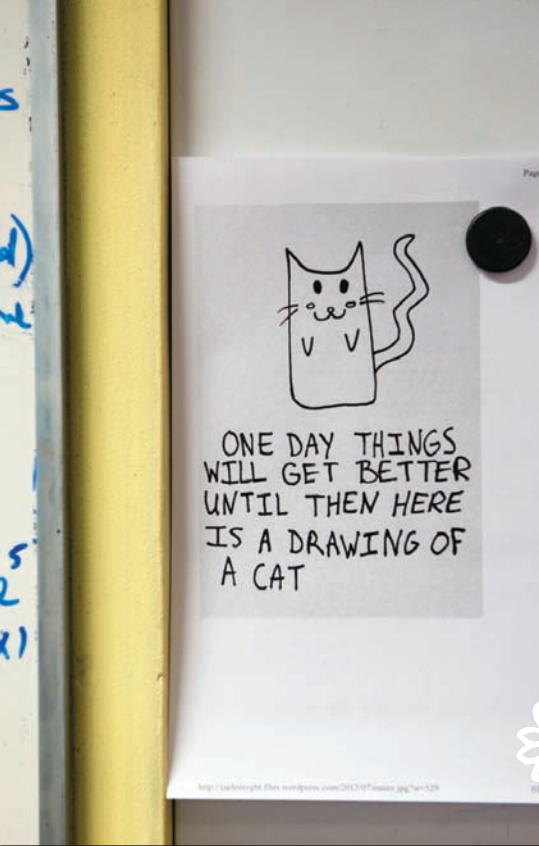 s
d)
Page
ONE DAY THINGS
WILL GET BETTER
UNTIL THEN HERE
IS A DRAWING OF
A CAT
5
2
x)